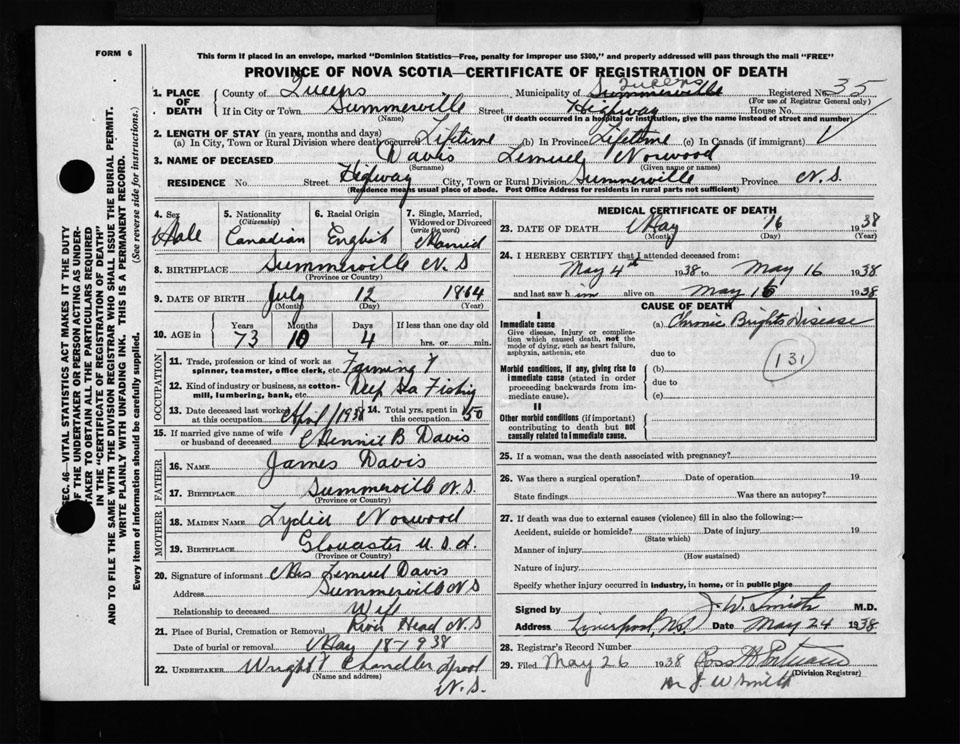 FORM 6
This form if placed in an envelope, marked "Dominion Statistics—Free, penalty for improper use $300," and properly addressed will pass through the mail "FREE"
PROVINCE OF NOVA SCOTIA—CERTIFICATE OF REGISTRATION OF DEATH
1. PLACE OF DEATH County of Queens Municipality of Summerville Queens Registered No. 35
(For use of Registrar General only)
If in City or Town Summerville Street Highway House No.
(Name) (If death occurred in a hospital or institution, give the name instead of street and number)
2. LENGTH OF STAY (in years, months and days)
(a) In City, Town or Rural Division where death occurred Lifetime (b) In Province Lifetime (c) In Canada (if immigrant) √
3. NAME OF DECEASED Davis Lemuel Norwood
(Surname) (Given name or names)
RESIDENCE No. Street Higway City, Town or Rural Division Summerville Province N.S.
(Residence means usual place of abode. Post Office Address for residents in rural parts not sufficient)
4. Sex Male
5. Nationality (Citizenship) Canadian
6. Racial Origin English
7. Single, Married, Widowed or Divorced (write the word) Married
8. BIRTHPLACE Summerville N.S
(Province or Country)
9. DATE OF BIRTH July 12 1864
(Month) (Day) (Year)
10. AGE in Years 73 Months 10 Days 4 If less than one day old hrs. or min.
OCCUPATION
11. Trade, profession or kind of work as spinner, teamster, office clerk, etc. Farming &
12. Kind of industry or business, as cotton-mill, lumbering, bank, etc. Deep Sea Fishing
13. Date deceased last worked at this occupation April 1938 14. Total yrs. spent in this occupation 50
15. If married give name of wife or husband of deceased B. Davis
FATHER
16. NAME James Davis
17. BIRTHPLACE Summerville N.S.
(Province or Country)
MOTHER
18. MAIDEN NAME Lydia Norwood
19. BIRTHPLACE Gloucaster U.S.A.
(Province or Country)
20. Signature of informant Mrs Lemuel Davis
Address Summerville N S
Relationship to deceased Wife
21. Place of Burial, Cremation or Removal River Head N.S
Date of burial or removal May 18-1938
22. UNDERTAKER Wright & Chandler Lpool N.S.
(Name and address)
MEDICAL CERTIFICATE OF DEATH
23. DATE OF DEATH May 16 1938
(Month) (Day) (Year)
24. I HEREBY CERTIFY that I attended deceased from:
May 4th 1938 to May 16 1938
and last saw him alive on May 16 1938
CAUSE OF DEATH
I
Immediate cause (a) Chronic Brights Disease
Give disease, injury or complication which caused death, not the mode of dying, such as heart failure, asphyxia, asthenia, etc
due to
131
Morbid conditions, if any, giving rise to immediate cause (stated in order proceeding backwards from immediate cause).
(b)
due to
(c)
II
Other morbid conditions (if important) contributing to death but not causally related to immediate cause.
25. If a woman, was the death associated with pregnancy?
26. Was there a surgical operation? Date of operation 19
State findings Was there an autopsy?
27. If death was due to external causes (violence) fill in also the following:—
Accident, suicide or homicide? Date of injury 19
(State which)
Manner of injury
(How sustained)
Nature of injury
Specify whether injury occurred in industry, in home, or in public place
Signed by J. W. Smith M.D.
Address Liverpool, N.S. Date May 24 1938
28. Registrar's Record Number
29. Filed May 26 1938
(Division Registrar)
J. W Smith
SEC. 46—VITAL STATISTICS ACT MAKES IT THE DUTY
OF THE UNDERTAKER OR PERSON ACTING AS UNDER-
TAKER TO OBTAIN ALL THE PARTICULARS REQUIRED
IN THE "CERTIFICATE OF REGISTRATION OF DEATH"
AND TO FILE THE SAME WITH THE DIVISION REGISTRAR WHO SHALL ISSUE THE BURIAL PERMIT.
WRITE PLAINLY WITH UNFADING INK. THIS IS A PERMANENT RECORD.
Every item of information should be carefully supplied. (See reverse side for instructions.)